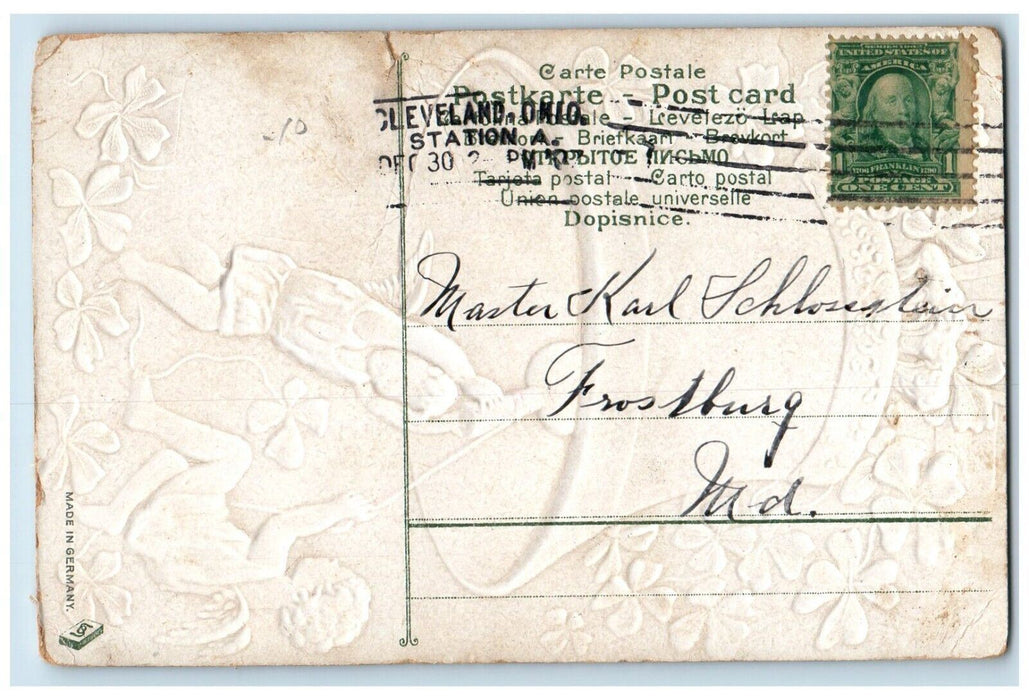 Carte Postale
Postkarte - Post card
Levelező-Lap
Briefkaart - Brevkort
ОТКРЫТОЕ ПИСЬМО
Tarjeta postal - Carto postal
Union postale universelle
Dopisnice.
CLEVELAND, OHIO.
STATION A.
DEC 30
SERIES 1902
UNITED STATES OF
AMERICA
1 1
1706 FRANKLIN 1790
POSTAGE
ONE CENT
-10
Master Karl Schlossstein
Frostburg
Md.
MADE IN GERMANY.